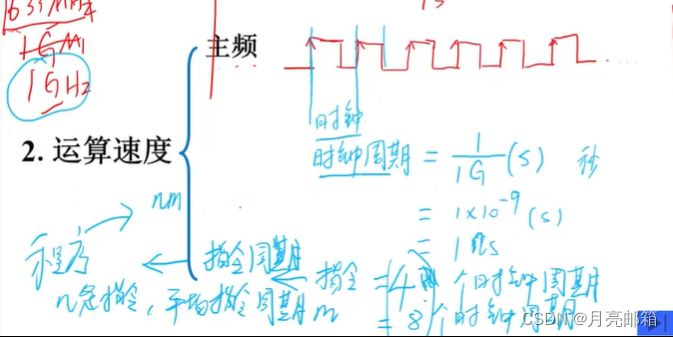 主频
1G
1GHz
时钟
2. 运算速度
时钟周期 = 1/1G (s) 秒
= 1×10⁻⁹ (s)
= 1ns
nm
程序
指令周期
指令 = 4 个时钟周期
n条指令, 平均指令周期 m
= 8个时钟周期
CSDN @月亮邮箱